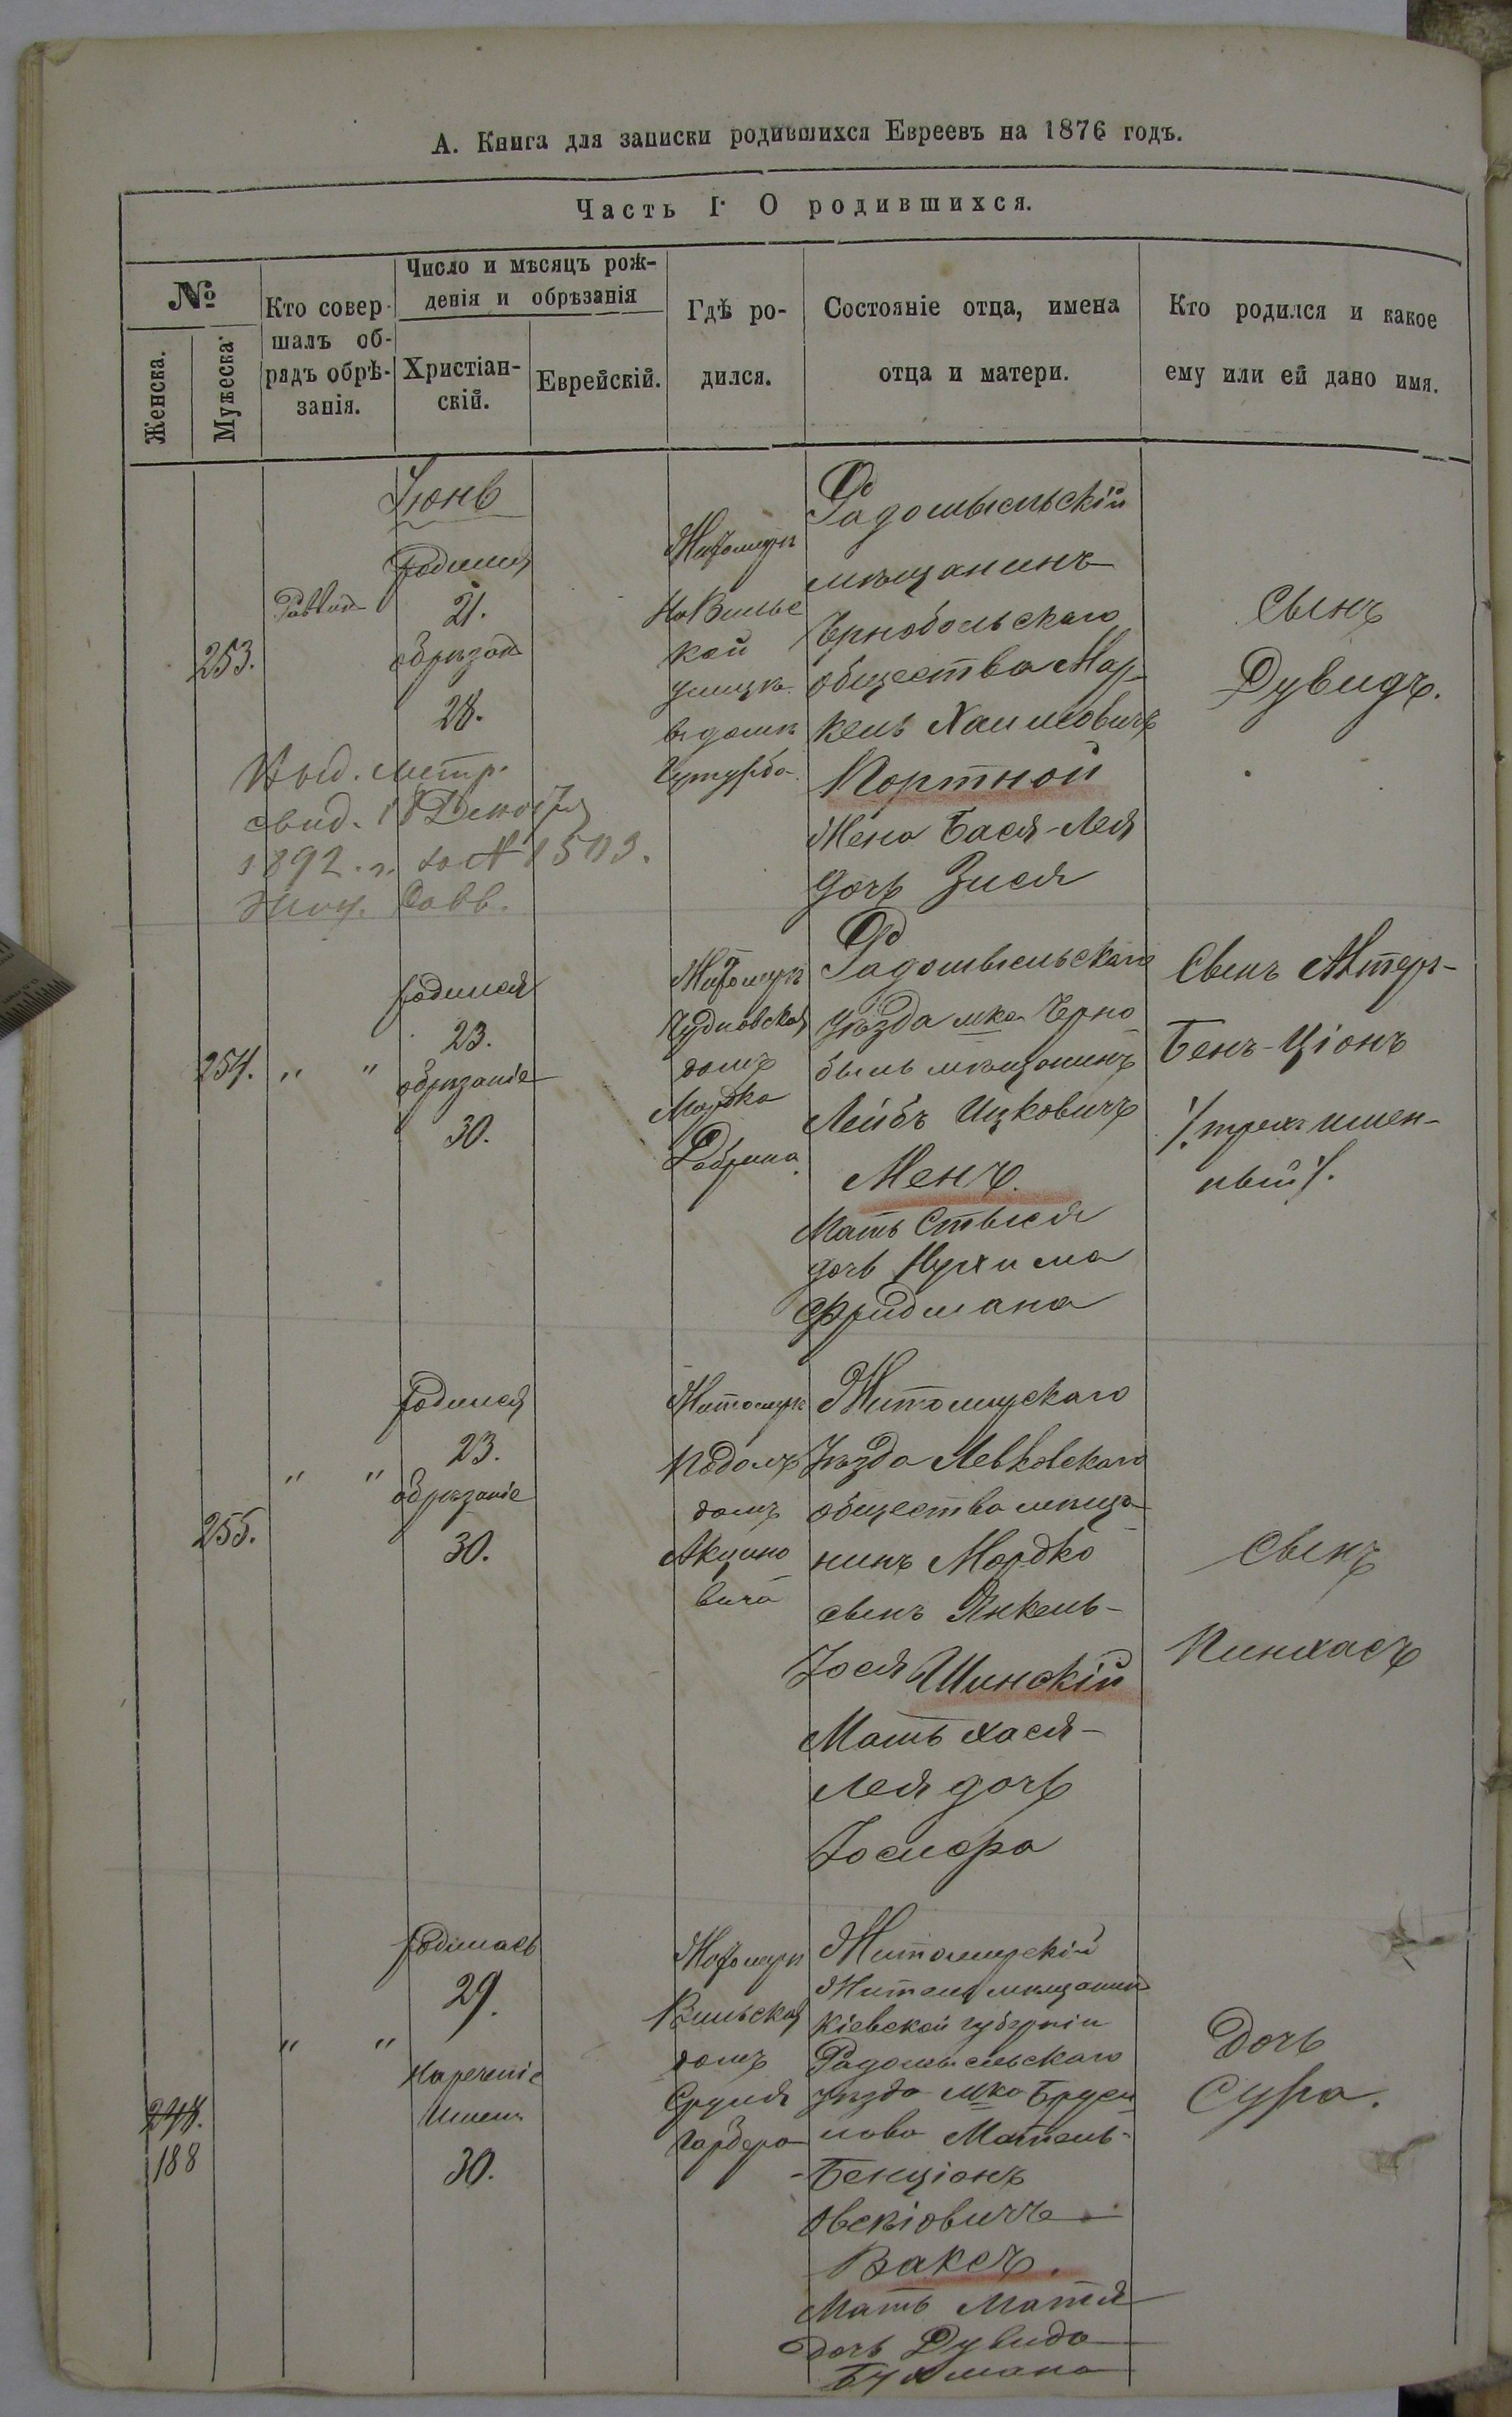 А. Книга для записки родившихся Евреевъ на 1876 годъ.
Часть I. О родившихся.
№
Женска.
Мужеска
Кто совер-
шалъ об-
рядъ обрѣ-
занія.
Число и мѣсяцъ рож-
денія и обрѣзанія
Христіан-
скій.
Еврейскій.
Гдѣ ро-
дился.
Состояніе отца, имена
отца и матери.
Кто родился и какое
ему или ей дано имя.
Іюнь
253.
Раввинъ
родился
21.
обрѣзанъ
28.
Житомиръ
На Вильс
кой
улицѣ
въ домѣ
Радомысльскій
мѣщанинъ
Чернобольскаго
общества Мор-
кель Хаимовичъ
Портной
Жена Бася-Лея
дочь Зися
Сынъ
Дувидъ.
Выд. метр.
свид. 18 Декабря
1892 г. за № 1503.
Жит. Равв.
254.
" "
родился
23.
обрѣзаніе
30.
Житомиръ
Чудновская
домъ
Мордка
Рабрина
Радомысльскаго
уѣзда мка Черно
быль мѣщанинъ
Лейбъ Ицковичъ
Менъ.
Мать Стыся
дочь Нухима
Фридмана
Сынъ Алтеръ-
Бенъ-Ціонъ
/. трехъ имен-
ный /.
255.
" "
родился
23.
обрѣзаніе
30.
Житомиръ
Подолъ
домъ
Акцино
вича
Житомирскаго
Уѣзда Левковскаго
общества мѣща-
нинъ Мордко
сынъ Янкель-
Іося Шинскій
Мать Хася-
Лея дочь
Іосифа
Сынъ
Пинхасъ
244.
188
" "
родилась
29.
Нареченіе
Имени
30.
Житомиръ
Вильская
домъ
Сруля
Гарбера
Житомирскій
Житель мѣщанинъ
Кіевской губерніи
Радомысльскаго
уѣзда мка Бруси
лова Мотель-
-Бенціонъ
Овскіовичъ
Ваксъ.
Мать Матя
дочь Дувида
Бухмана
Дочь
Сура.